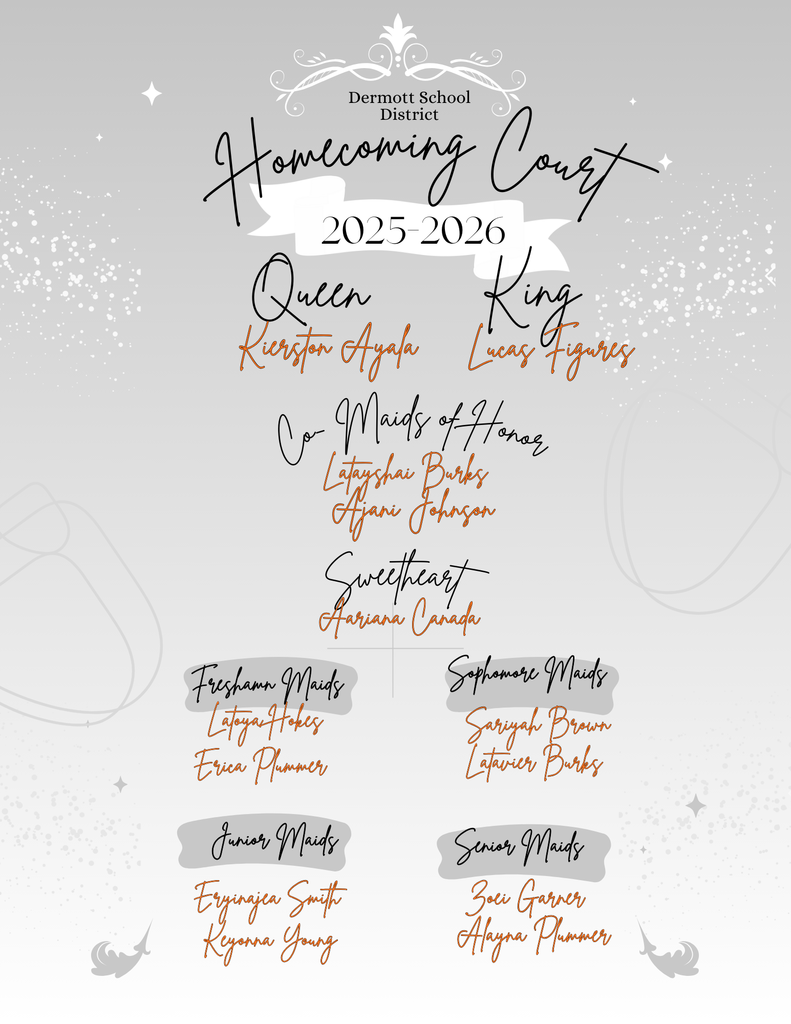 Dermott School
District
Homecoming Court
2025-2026
Queen King
Kierston Ayala Lucas Figures
Co- Maids of Honor
Latayshai Burks
Ajani Johnson
Sweetheart
Aariana Canada
Freshamn Maids Sophomore Maids
Latoya Hokes Sariyah Brown
Erica Plummer Latavier Burks
Junior Maids Senior Maids
Eryinajea Smith Zoei Garner
Keyonna Young Alayna Plummer